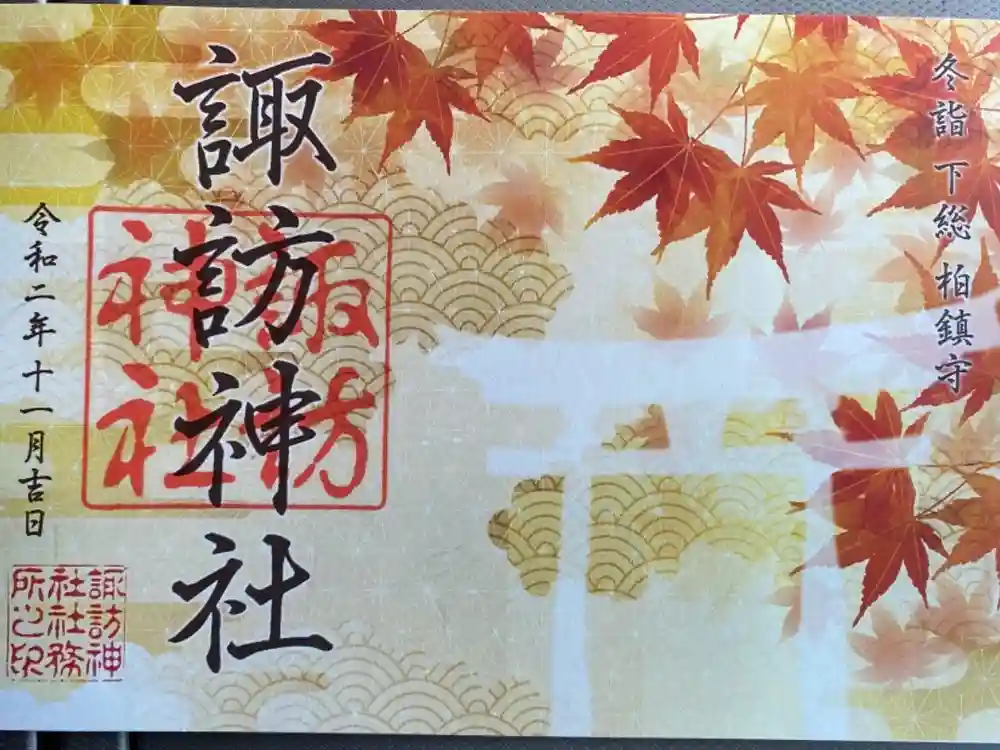 冬詣 下総 柏鎮守
諏訪神社
諏訪
神社
令和二年十一月吉日
諏訪神
社社務
所之印